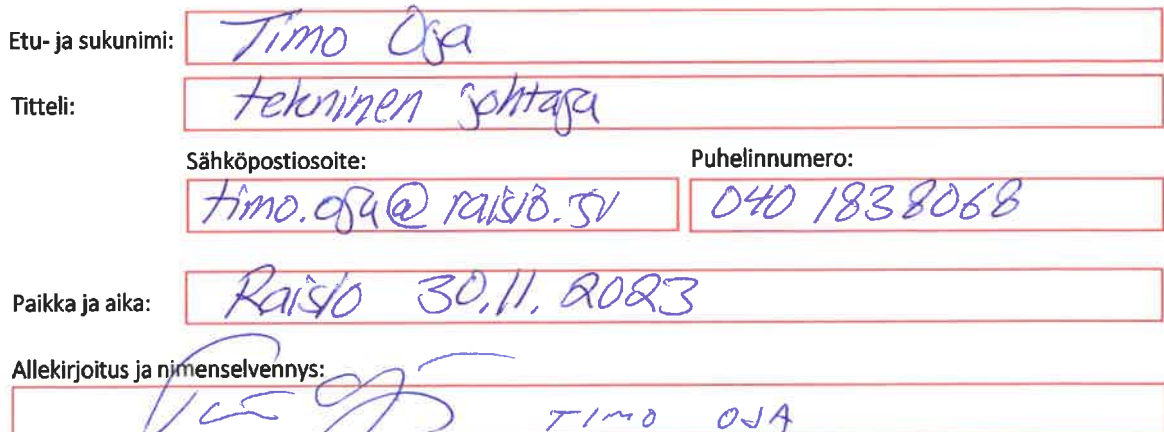 Etu- ja sukunimi: Timo Oja
Titteli: tekninen johtaja
Sähköpostiosoite: Puhelinnumero:
timo.oja@raisio.fi 040 1838068
Paikka ja aika: Raisio 30.11.2023
Allekirjoitus ja nimenselvennys:
TIMO OJA